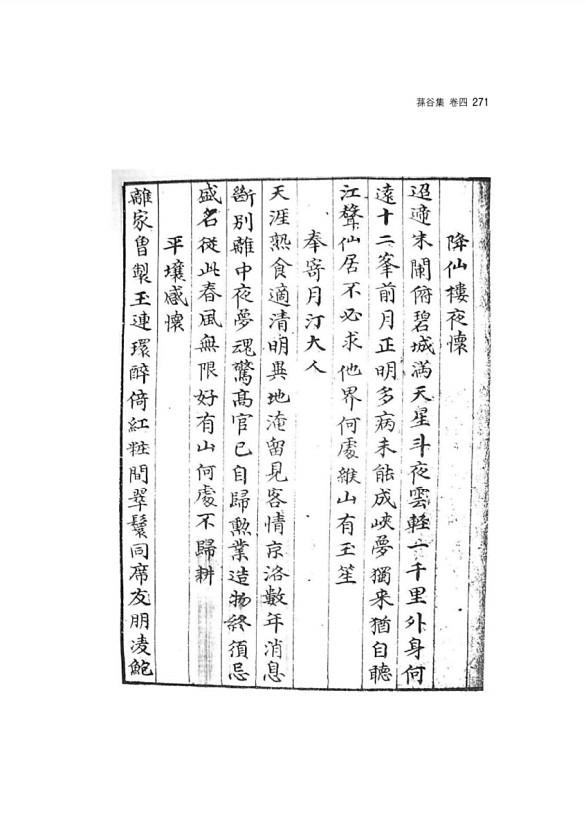 蓀谷集 卷四 271
降仙樓夜懷
迢遞朱闌俯碧城滿天星斗夜雲輕一千里外身何
遠十二峯前月正明多病未能成峽夢獨来猶自聽
江聲仙居不必求他界何處緱山有玉笙
奉寄月汀大人
天涯熟食適清明異地淹留見客情京洛數年消息
斷別離中夜夢魂驚髙官已自歸勲業造物終須忌
盛名從此春風無限好有山何處不歸耕
平壤感懷
離家曽製玉連環醉倚紅粧間翠鬟同席友朋凌鮑